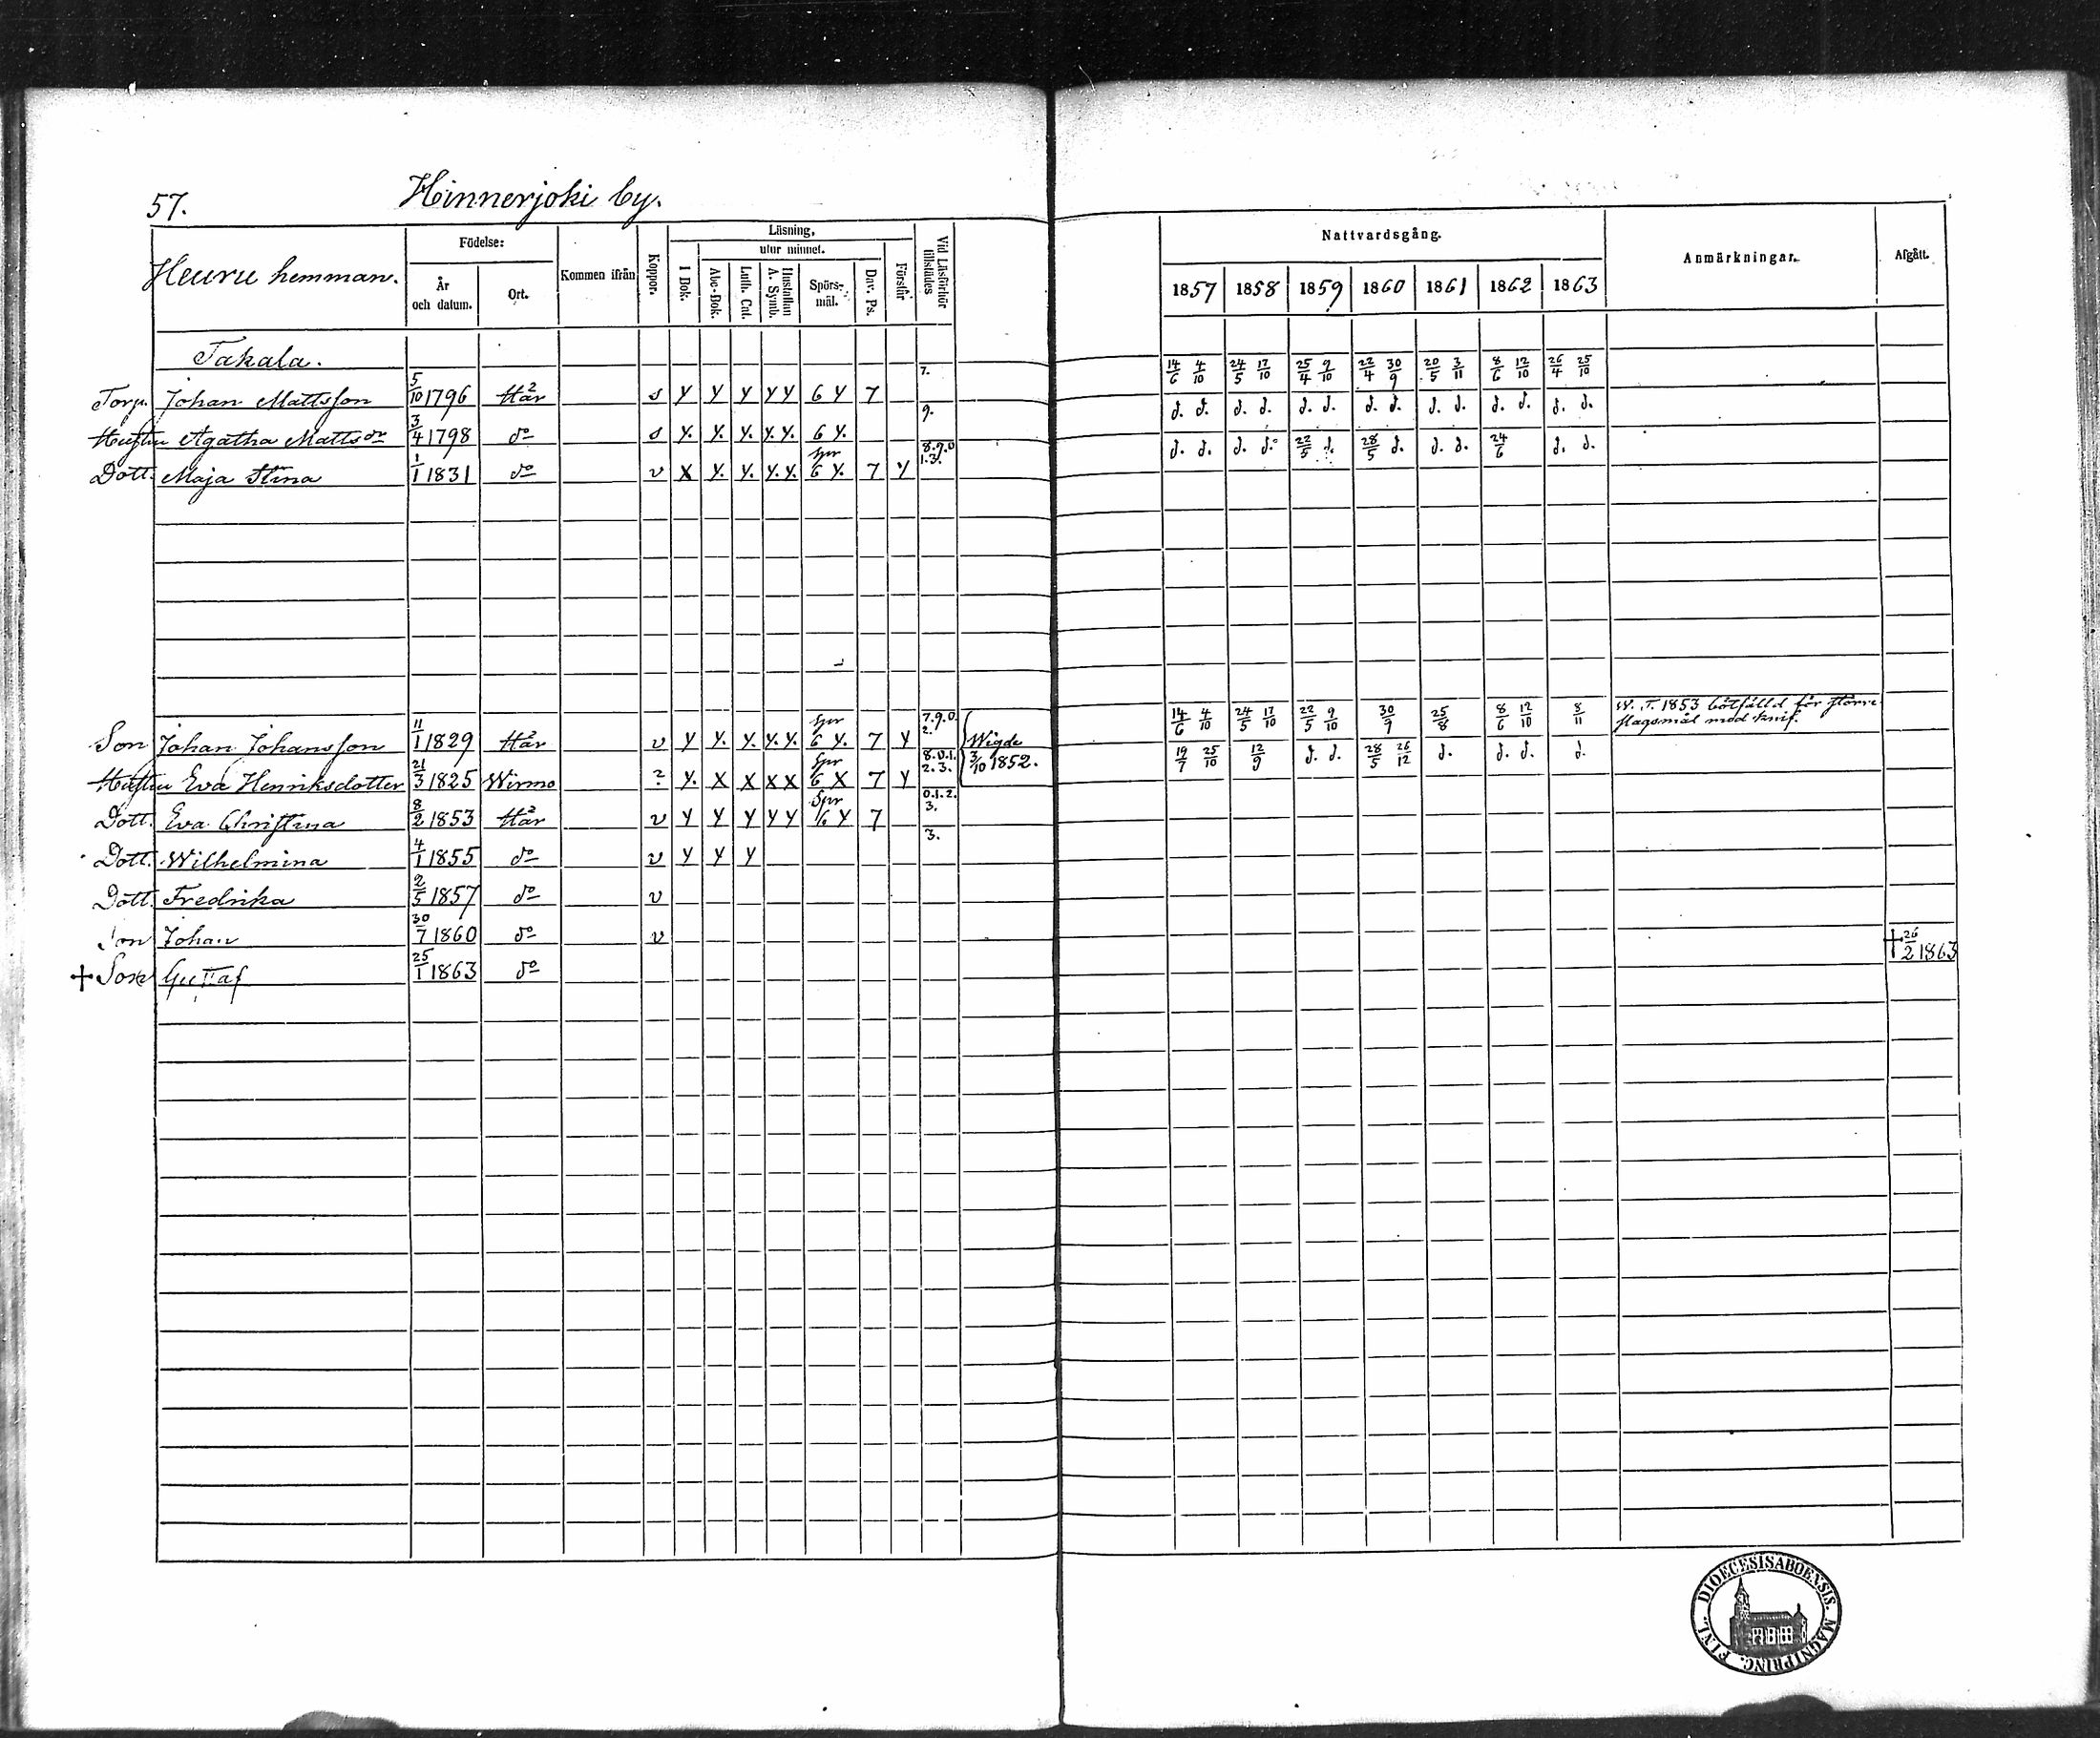 57. Hinnerjoki by.
Heuru hemman.
Födelse:
År och datum.
Ort.
Kommen ifrån
Koppor.
Läsning,
I Bok.
utur minnet.
Abc-Bok.
Luth. Cat.
Hustaflan A. Symb.
Spörs-mål.
Dav. Ps.
Förstår
Vid Läsförhör tillstädes
Nattvardsgång.
1857 1858 1859 1860 1861 1862 1863
Anmärkningar.
Afgått.
Takala.
Torp. Johan Mattsson 5/10 1796 Här s y y y y y 6 y 7 7. 14/6 4/10 24/5 17/10 25/4 9/10 22/4 30/9 20/5 3/11 8/6 12/10 26/4 25/10
Hustru Agatha Mattsdr 3/4 1798 do s y. y. y. y. y. 6 y. 9. d. d. d. d. d. d. d. d. d. d. d. d. d. d.
Dott. Maja Stina 1/1 1831 do v x y. y. y. y. spr 6 y. 7 y 8.9.0 1.3. d. d. d. d. 22/5 d. 28/5 d. d. d. 24/6 d. d.
Son Johan Johansson 11/1 1829 Här v y y. y. y. y. spr 6 y. 7 y 7.9.0. 2. Wigde 3/10 1852. 14/6 4/10 24/5 17/10 22/5 9/10 30/9 25/8 8/6 12/10 8/11 W. T. 1853 bötfälld för större
slagsmål med knif.
Hustru Eva Henriksdotter 21/3 1825 Wirmo ? y. x x x x spr 6 x 7 y 8.0.1. 2.3. 19/7 25/10 12/9 d. d. 28/5 26/12 d. d. d. d.
Dott. Eva Christina 8/2 1853 Här v y y y y y Spr 1/6 y 7 0.1.2. 3.
Dott. Wilhelmina 4/1 1855 do v y y y 3.
Dott. Fredrika 2/5 1857 do v
Son Johan 30/7 1860 do v
† Son Gustaf 25/1 1863 do † 26/2 1863
DIOECESIS ABOENSIS. MAGNI PRINC. FINL.